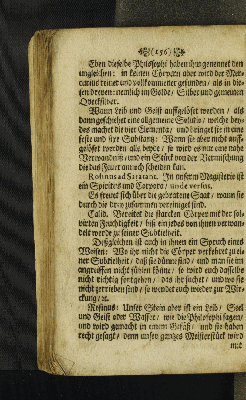 (156)
Eben diese die Philosophi haben ihn genennet den
ungleichen: in keinen Cörpern aber wird der Mer-
curius reiner und vollkommener gefunden/ als in die-
sen dreyen: nemlich im Golde/ Silber und gemeinen
Quecksilber.
Wann Leib und Geist auffgelöset werden/ als
dann geschiehet eine allgemeine Solutio/ welche bey-
des machet die vier Elementa/ und bringet sie in eine
feste und fixe Substanz: Wann sie aber nicht auff-
gelöset werden alle beyde/ so wird es nur eine nahe
Verwandniß/ und ein Stück von der Vermischung
die das Feuer annoch scheiden kan.
Rohinus ad Sarratant. In unserm Magisterio ist
ein Spiritus und Corpora/ unde versus.
Es freuet sich über die gehabten Saat/ wann sie
durch die drey zusammen vereiniget sind.
Calid. Bereitet die starcken Cörper mit der sol-
virten Feuchtigkeit/ biß ein jedes von ihnen verwan-
delt werde zu seiner Subtilheit.
Deßgleichen ist auch in ihnen ein Spruch eines
Weisen: Wo ihr nicht die Cörper verkehret zu ei-
ner Subtilheit/ daß sie dünne sind/ und man sie im
angreiffen nicht fühlen könne/ so wird euch dasselbe
nicht richtig fortgehen/ das ihr suchet/ und wo sie
nicht gerieben sind/ so wendet euch wieder zur Wür-
ckung/ etc.
Rosinus: Unser Stein aber ist ein Leib/ Seel
und Geist oder Wasser/ wie die Philosophi sagen/
und wird gemacht in einem Gefäß/ und sie haben
recht gesagt/ denn unser gantzes Meisterstück wird
mit